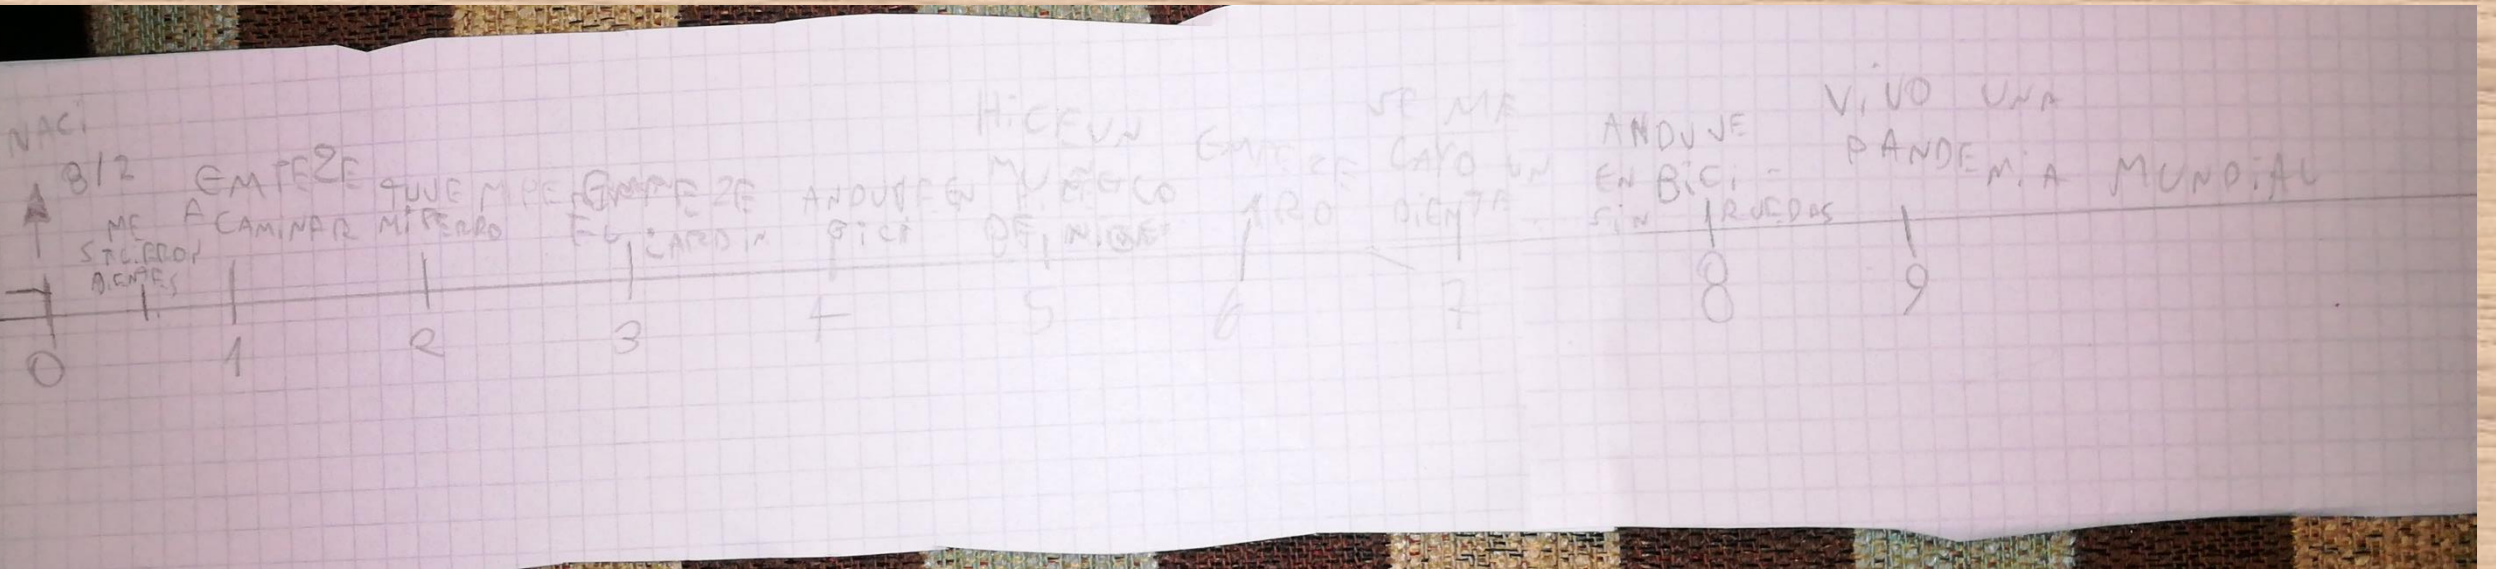 NACI
8/2
ME
SALIERON
DIENTES
EMPEZE
A CAMINAR
TUVE MI PE
MI PERRO
EMPEZE
EL JARDIN
ANDUVE EN
BICI
HICE UN
MUÑECO
DE NIEVE
EMPEZE
1RO
SE ME
CAYO UN
DIENTE
ANDUVE
EN BICI -
SIN RUEDAS
VIVO UNA
PANDEMIA MUNDIAL
0 1 2 3 4 5 6 7 8 9